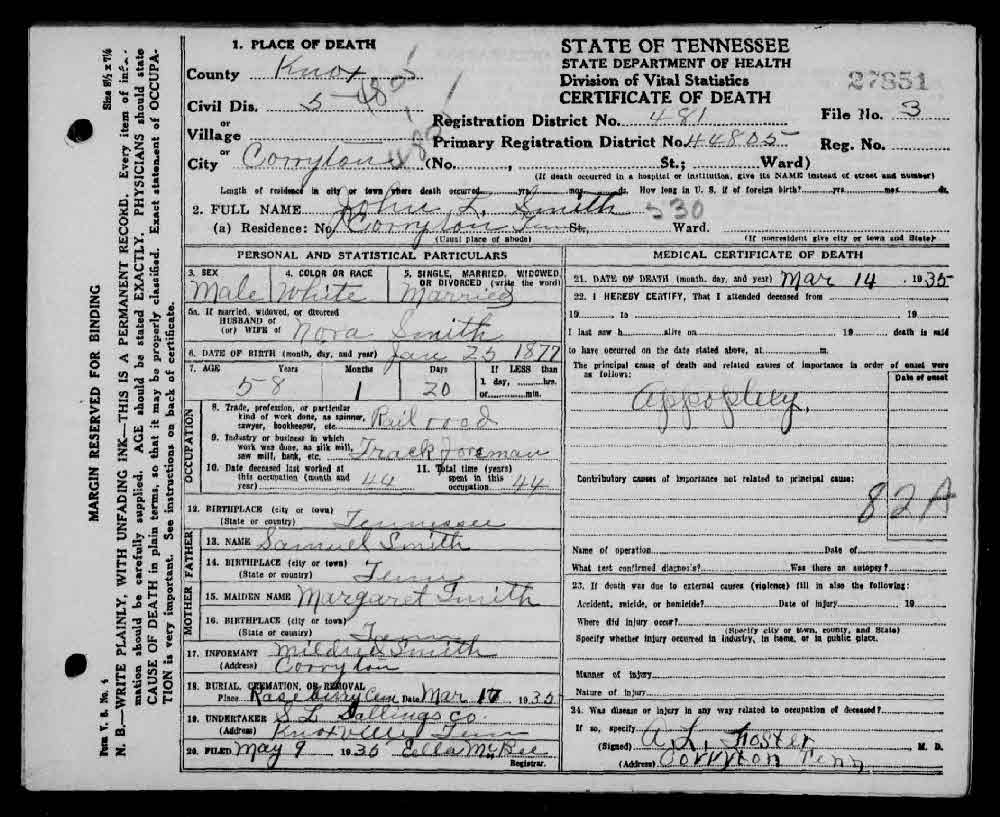 1. PLACE OF DEATH
County Knox
Civil Dis. 5 480
or
Village
or
City Corryton (No. , St.; Ward)
STATE OF TENNESSEE
STATE DEPARTMENT OF HEALTH
Division of Vital Statistics
CERTIFICATE OF DEATH
27851
Registration District No. 481 File No. 3
Primary Registration District No. 44805 Reg. No.
(If death occurred in a hospital or institution, give its NAME instead of street and number)
Length of residence in city or town where death occurred yrs. mos. ds. How long in U. S. if of foreign birth? yrs. mos. ds.
2. FULL NAME John L. Smith 530
(a) Residence: No. Corryton Tenn St., Ward.
(Usual place of abode) (If nonresident give city or town and State)
PERSONAL AND STATISTICAL PARTICULARS
3. SEX Male
4. COLOR OR RACE White
5. SINGLE, MARRIED, WIDOWED OR DIVORCED, (write the word) Married
5a. If married, widowed, or divorced
HUSBAND of
(or) WIFE of Nora Smith
6. DATE OF BIRTH (month, day, and year) Jan 25 1877
7. AGE Years 58 Months 1 Days 20 If LESS than
1 day, hrs.
or min.
OCCUPATION
8. Trade, profession, or particular
kind of work done, as spinner,
sawyer, bookkeeper, etc. Rail road
9. Industry or business in which
work was done, as silk mill,
saw mill, bank, etc. Track foreman
10. Date deceased last worked at
this occupation (month and
year) 44
11. Total time (years)
spent in this
occupation 44
12. BIRTHPLACE (city or town)
(State or country) Tennessee
FATHER
13. NAME Samuel Smith
14. BIRTHPLACE (city or town)
(State or country) Tenn
MOTHER
15. MAIDEN NAME Margaret Smith
16. BIRTHPLACE (city or town)
(State or country) Tenn
17. INFORMANT Mildred Smith
(Address) Corryton
18. BURIAL, CREMATION, OR REMOVAL
Place Roseberry Cem Date Mar 17 1935
19. UNDERTAKER S L Co.
(Address) Knoxville Tenn
20. FILED May 9 1935 Ella McBee
Registrar.
MEDICAL CERTIFICATE OF DEATH
21. DATE OF DEATH (month, day, and year) Mar 14 1935
22. I HEREBY CERTIFY, That I attended deceased from
19 to 19
I last saw h alive on 19 death is said
to have occurred on the date stated above, at m.
The principal cause of death and related causes of importance in order of onset were
as follows: Date of onset
Appoplexy
Contributory causes of importance not related to principal cause:
82A
Name of operation Date of
What test confirmed diagnosis? Was there an autopsy?
23. If death was due to external causes (violence) fill in also the following:
Accident, suicide, or homicide? Date of injury 19
Where did injury occur?
(Specify city or town, county, and State)
Specify whether injury occurred in industry, in home, or in public place.
Manner of injury
Nature of injury
24. Was disease or injury in any way related to occupation of deceased?
If so, specify
(Signed) A. L. Foster M. D.
(Address) Corryton Tenn
MARGIN RESERVED FOR BINDING
Form V. S. No. 4 Size 8½ x 7¼
N. B.—WRITE PLAINLY, WITH UNFADING INK—THIS IS A PERMANENT RECORD. Every item of infor-
mation should be carefully supplied. AGE should be stated EXACTLY. PHYSICIANS should state
CAUSE OF DEATH in plain terms, so that it may be properly classified. Exact statement of OCCUPA-
TION is very important. See instructions on back of certificate.